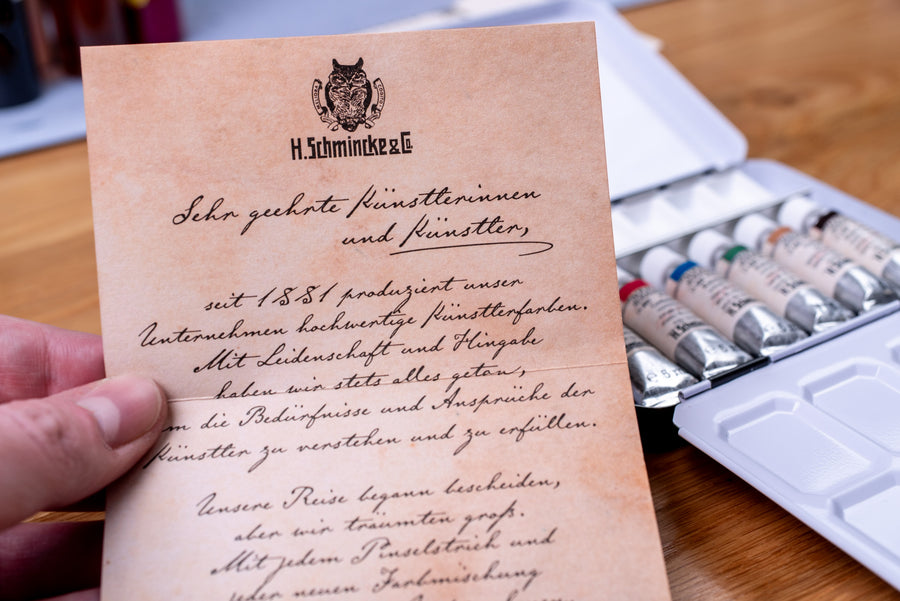 H. Schmincke & Co.
Sehr geehrte Künstlerinnen
und Künstler,
seit 1881 produziert unser
Unternehmen hochwertige Künstlerfarben.
Mit Leidenschaft und Hingabe
haben wir stets alles getan,
um die Bedürfnisse und Ansprüche der
Künstler zu verstehen und zu erfüllen.
Unsere Reise begann bescheiden,
aber wir träumten groß.
Mit jedem Pinselstrich und
jeder neuen Farbmischung